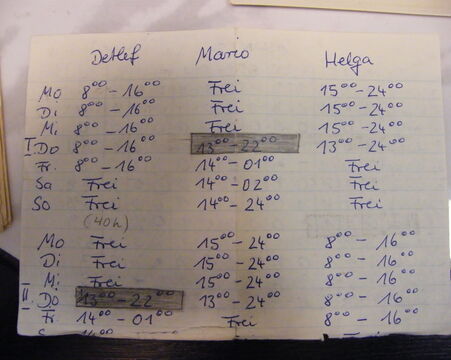 Detlef Marco Helga
Mo 8⁰⁰ - 16⁰⁰ Frei 15⁰⁰ - 24⁰⁰
Di 8⁰⁰ - 16⁰⁰ Frei 15⁰⁰ - 24⁰⁰
Mi 8⁰⁰ - 16⁰⁰ Frei 15⁰⁰ - 24⁰⁰
I Do 8⁰⁰ - 16⁰⁰ 13⁰⁰ - 22⁰⁰ 13⁰⁰ - 24⁰⁰
Fr. 8⁰⁰ - 16⁰⁰ 14⁰⁰ - 01⁰⁰ Frei
Sa Frei 14⁰⁰ - 02⁰⁰ Frei
So Frei 14⁰⁰ - 24⁰⁰ Frei
(40h)
Mo Frei 15⁰⁰ - 24⁰⁰ 8⁰⁰ - 16⁰⁰
Di Frei 15⁰⁰ - 24⁰⁰ 8⁰⁰ - 16⁰⁰
Mi Frei 15⁰⁰ - 24⁰⁰ 8⁰⁰ - 16⁰⁰
II Do 13⁰⁰ - 22⁰⁰ 13⁰⁰ - 24⁰⁰ 8⁰⁰ - 16⁰⁰
Fr 14⁰⁰ - 01⁰⁰ Frei 8⁰⁰ - 16⁰⁰